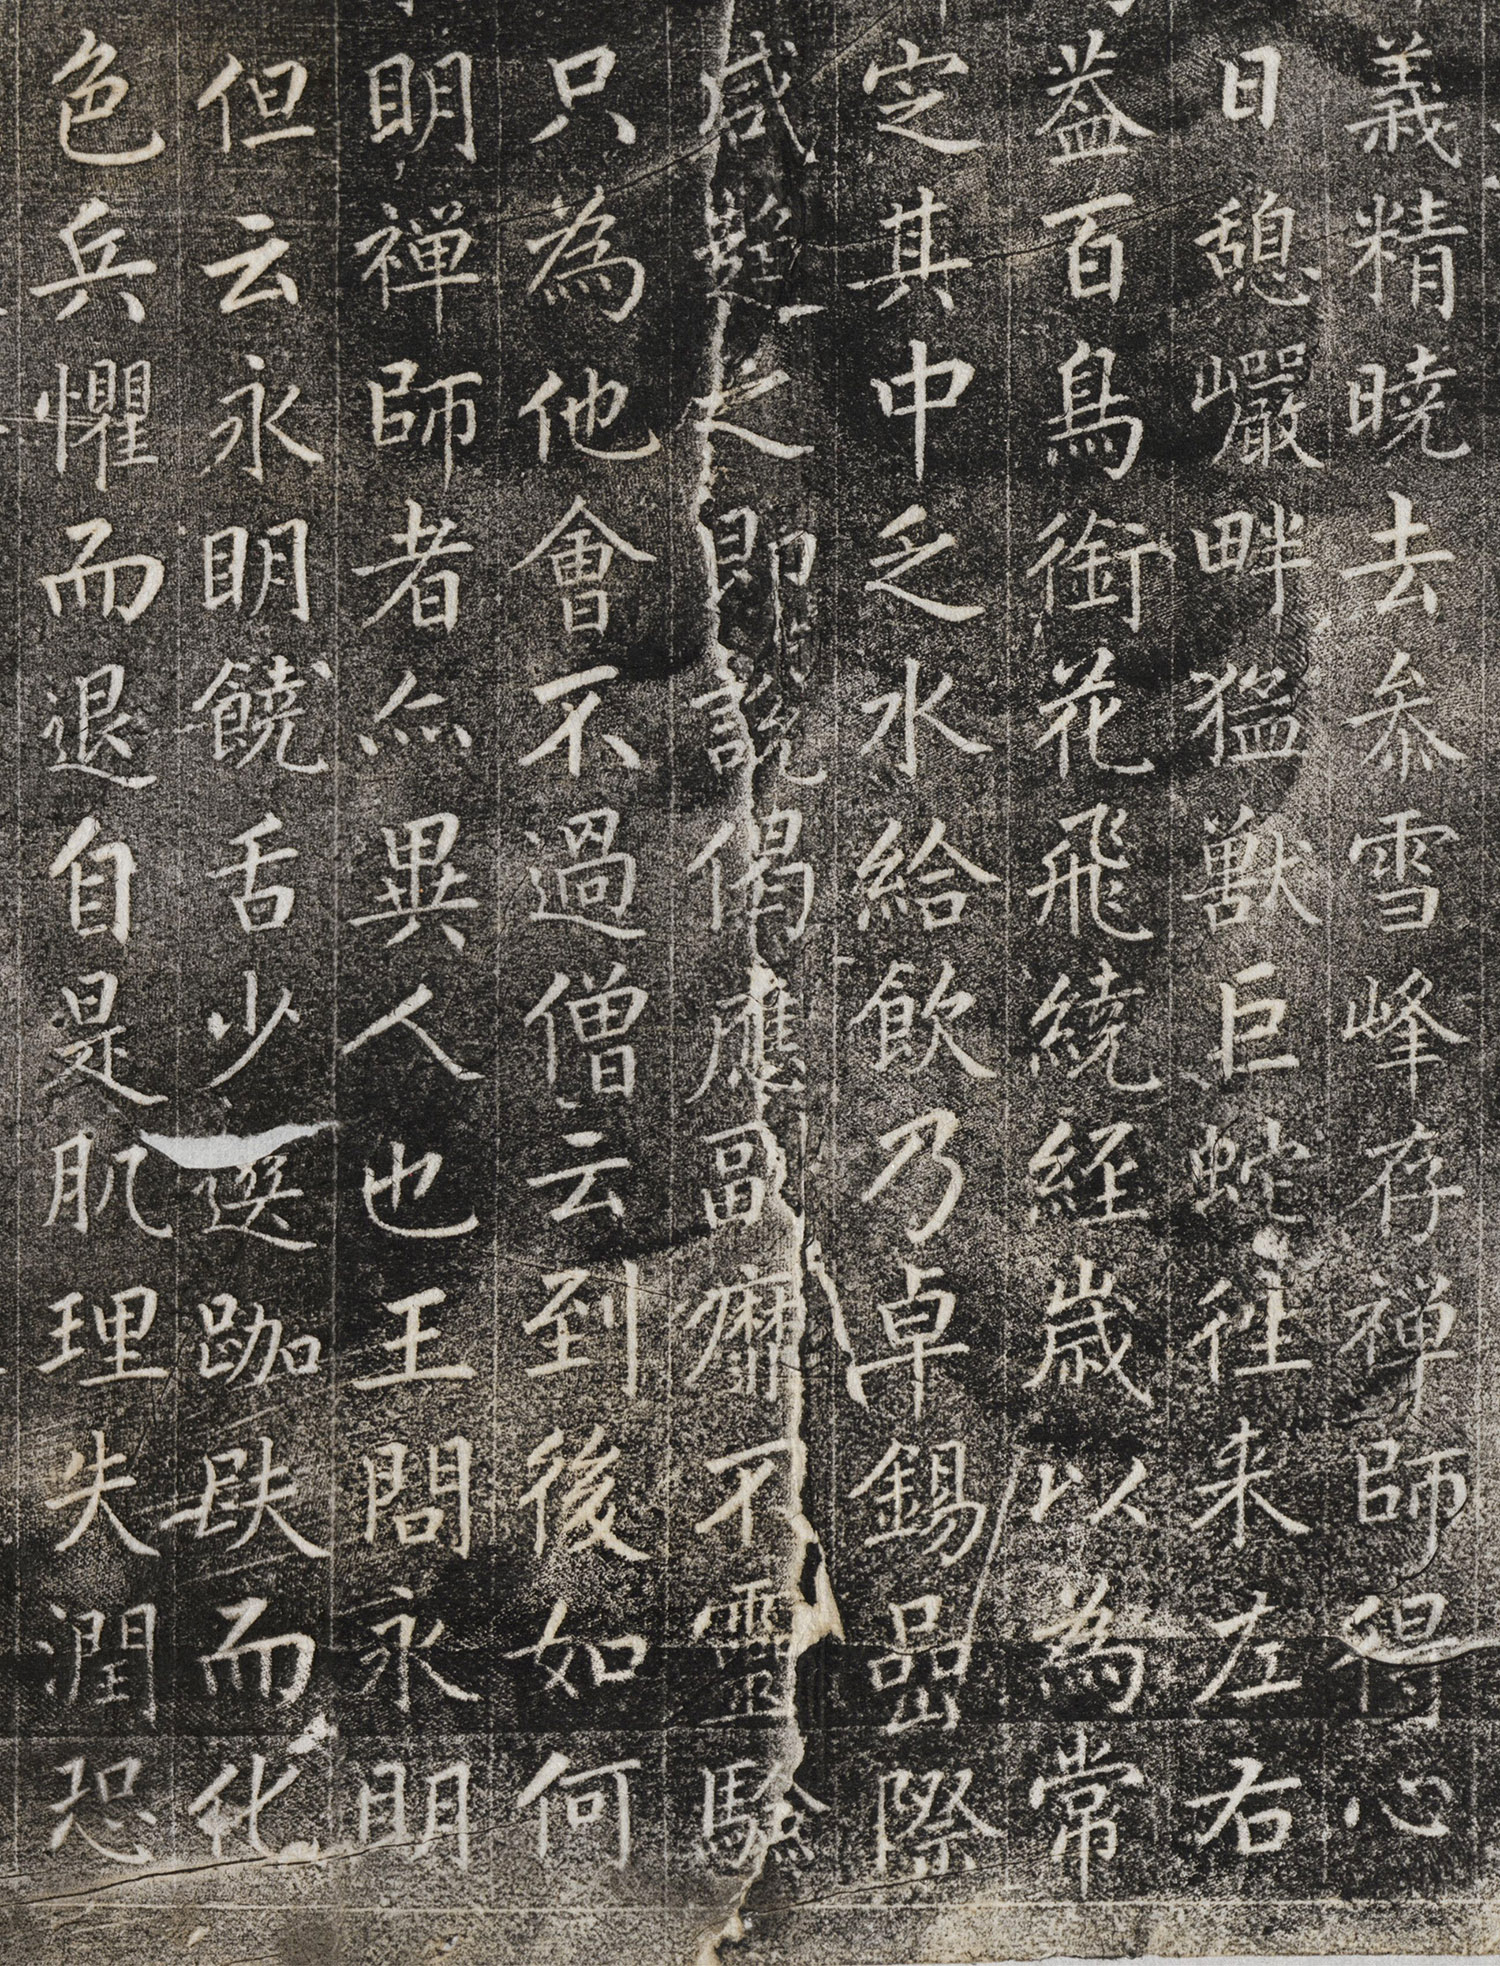 義精曉去叅雪峰存禅師得心
日憩巖畔猛獸巨蛇往来左右
葢百鳥銜花飛繞經歲以為常
定其中乏水給飲乃卓錫嵒際
咸疑之即說偈應副痲不靈驗
只為他會不過僧云到後如何
明禅師者亦異人也王問永明
但云永明饒舌少選跏趺而化
色兵懼而退自是肌理失潤恐